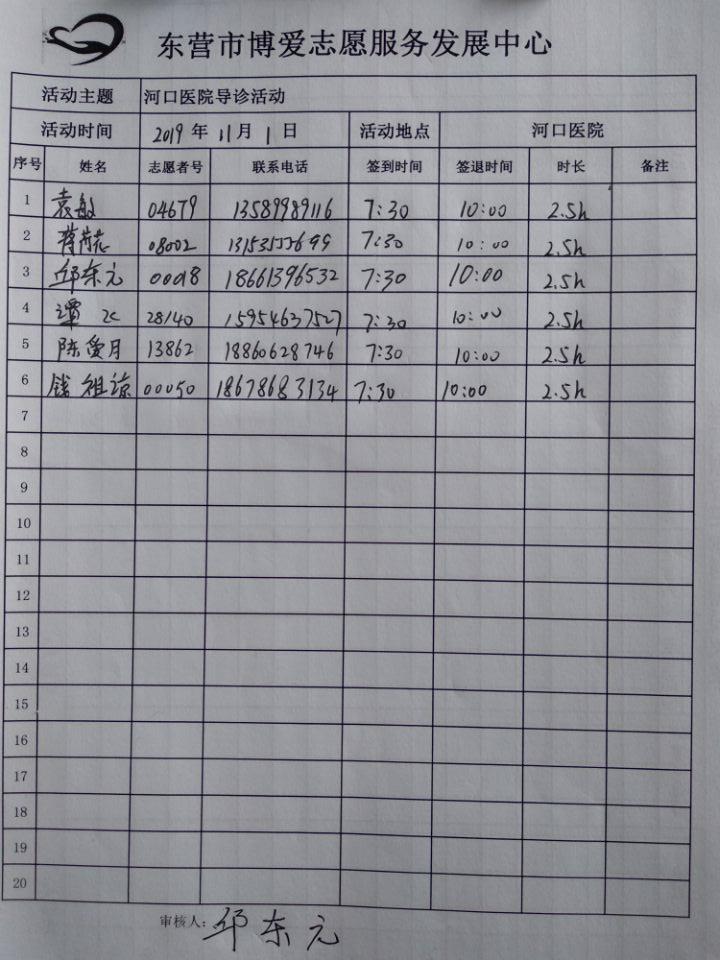 东营市博爱志愿服务发展中心
活动主题 河口医院导诊活动
活动时间 2019年11月1日 活动地点 河口医院
序号 姓名 志愿者号 联系电话 签到时间 签退时间 时长 备注
1 袁敏 04679 13589989116 7:30 10:00 2.5h
2 08002 7:30 10:00 2.5h
3 邱东元 00018 18661396532 7:30 10:00 2.5h
4 28140 15954637527 7:30 10:00 2.5h
5 陈爱月 13862 18860628746 7:30 10:00 2.5h
6 钱祖谅 00050 18678683134 7:30 10:00 2.5h
7
8
9
10
11
12
13
14
15
16
17
18
19
20
审核人:邱东元